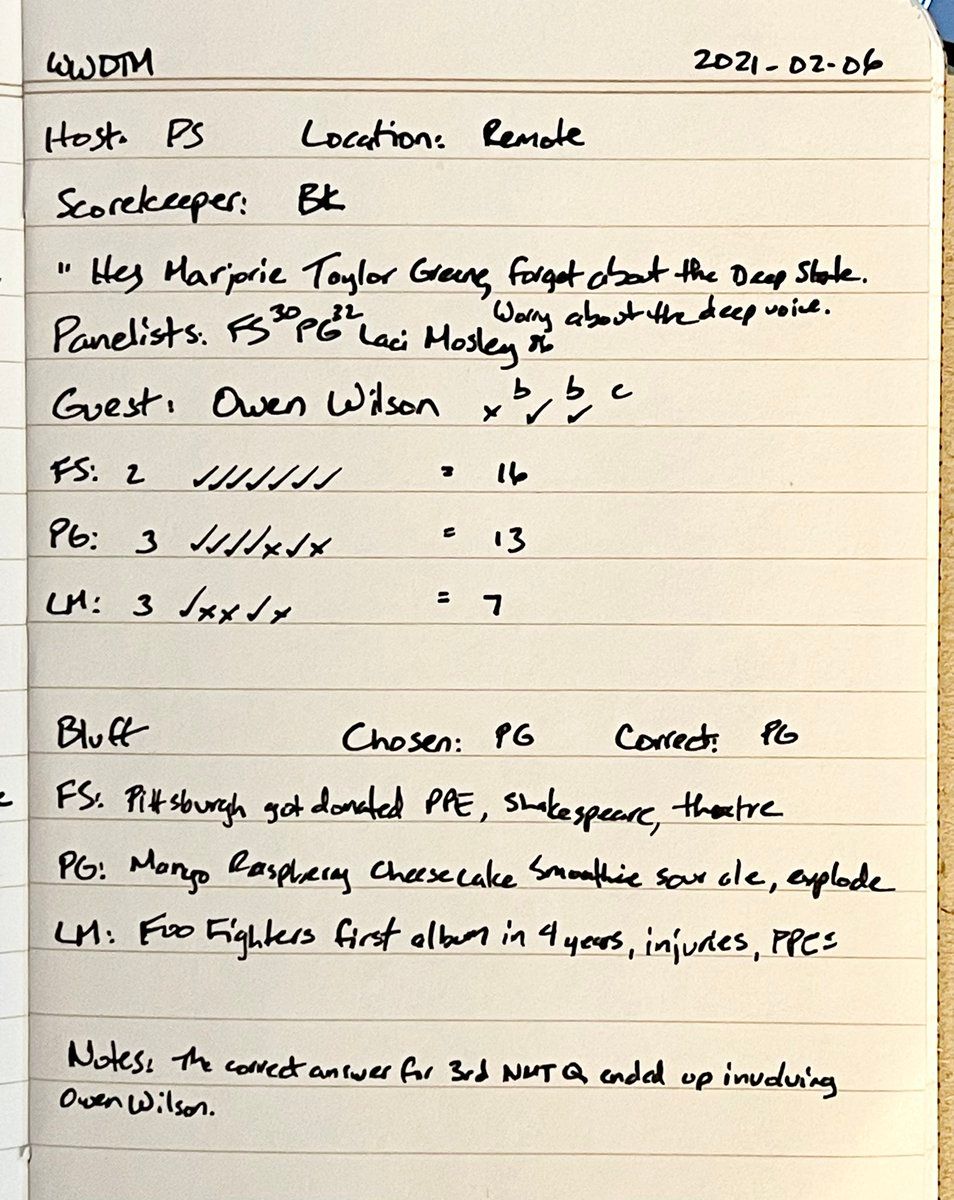 WWDTM 2021-02-06
Host: PS Location: Remote
Scorekeeper: BK
" Hey Marjorie Taylor Greene, forget about the Deep State.
Worry about the deep voice.
Panelists: FS 30 PG 32 Laci Mosley
Guest: Owen Wilson x b✓ b✓ c
FS: 2 ✓✓✓✓✓✓✓ = 16
PG: 3 ✓✓✓✓x✓x = 13
LM: 3 ✓xx✓x = 7
Bluff Chosen: PG Correct: PG
FS: Pittsburgh got donated PPE, Shakespeare, theatre
PG: Mango Raspberry Cheesecake Smoothie sour ale, explode
LM: Foo Fighters first album in 4 years, injuries, PPEs
Notes: The correct answer for 3rd NMT Q ended up involving
Owen Wilson.